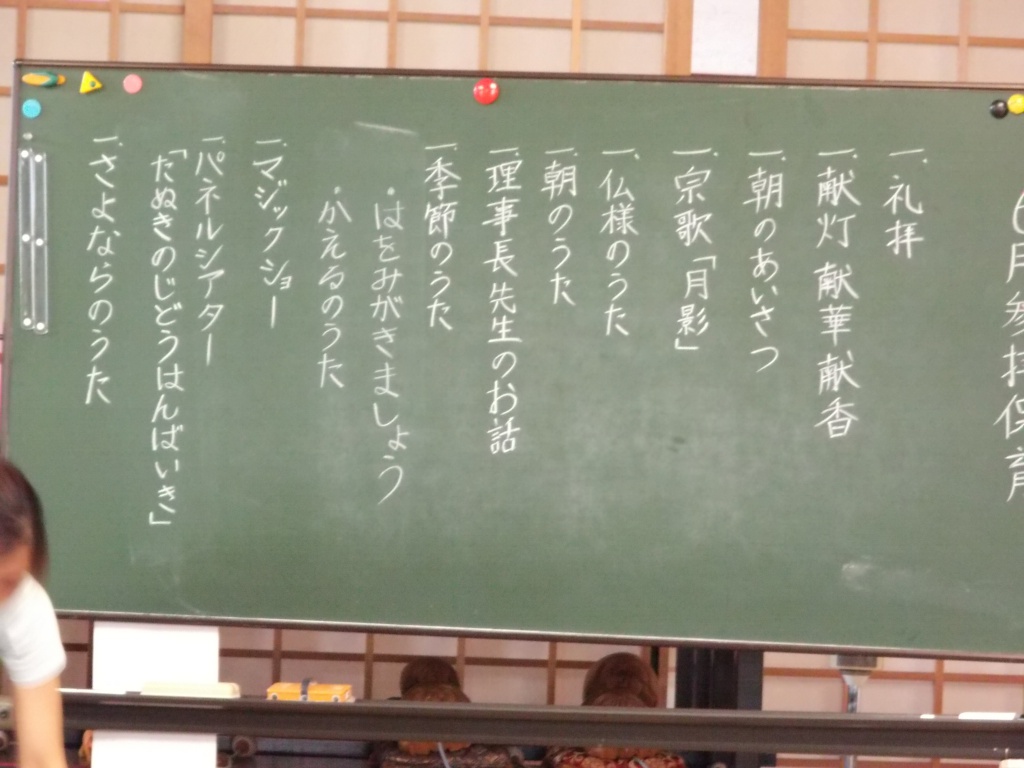 6月参拝保育
一、礼拝
一、献灯 献華 献香
一、朝のあいさつ
一、宗歌「月影」
一、仏様のうた
一、朝のうた
一、理事長先生のお話
一、季節のうた
・はをみがきましょう
・かえるのうた
一、マジックショー
一、パネルシアター
「たぬきのじどうはんばいき」
一、さよならのうた